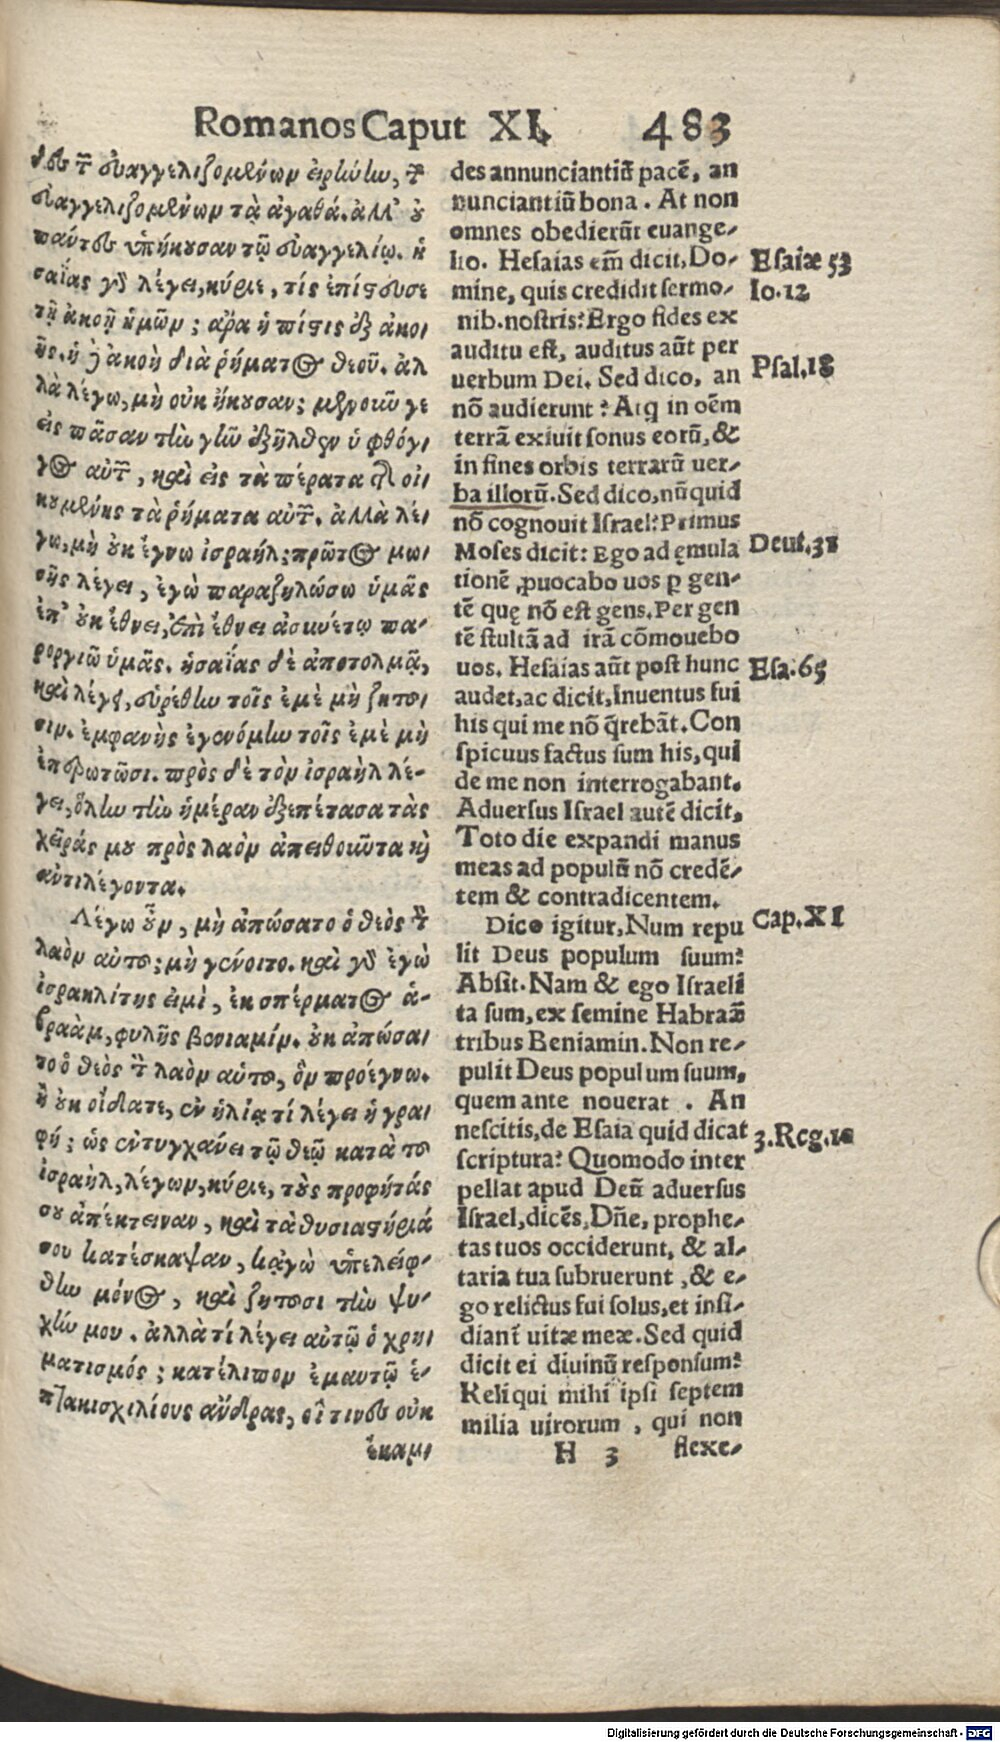 Romanos Caput XI. 483
δες τῶν εὐαγγελιζομένων εἰρήνην, τῶν
εὐαγγελιζομένων τὰ ἀγαθά. ἀλλ' οὐ
πάντες ὑπήκουσαν τῷ εὐαγγελίῳ. ἠ
σαΐας γὰρ λέγει, κύριε, τίς ἐπίστευσε
τῇ ἀκοῇ ἡμῶν; ἄρα ἡ πίστις ἐξ ἀκοῆς
ἡ δὲ ἀκοὴ διὰ ῥήματος θεοῦ. ἀλ
λὰ λέγω, μὴ οὐκ ἤκουσαν; μενοῦν γε
εἰς πᾶσαν τὴν γῆν ἐξῆλθεν ὁ φθόγ-
γος αὐτῶν, καὶ εἰς τὰ πέρατα τῆς οἰ-
κουμένης τὰ ῥήματα αὐτῶν. ἀλλὰ λέ-
γω, μὴ οὐκ ἔγνω ἰσραήλ; πρῶτος μω-
σῆς λέγει, ἐγὼ παραζηλώσω ὑμᾶς
ἐπ' οὐκ ἔθνει, ἐπὶ ἔθνει ἀσυνέτῳ πα-
ροργιῶ ὑμᾶς. ἠσαΐας δὲ ἀποτολμᾷ,
καὶ λέγει, εὑρέθην τοῖς ἐμὲ μὴ ζητοῦ-
σιν. ἐμφανὴς ἐγενόμην τοῖς ἐμὲ μὴ
ἐπερωτῶσι. πρὸς δὲ τὸν ἰσραὴλ λέ-
γει, ὅλην τὴν ἡμέραν ἐξεπέτασα τὰς
χεῖράς μου πρὸς λαὸν ἀπειθοῦντα καὶ
ἀντιλέγοντα.
Λέγω οὖν, μὴ ἀπώσατο ὁ θεὸς τὸν
λαὸν αὐτοῦ; μὴ γένοιτο. καὶ γὰρ ἐγὼ
ἰσραηλίτης εἰμὶ, ἐκ σπέρματος ἀ-
βραὰμ, φυλῆς βενιαμίν. οὐκ ἀπώσα-
το ὁ θεὸς τὸν λαὸν αὐτοῦ, ὃν προέγνω.
ἢ οὐκ οἴδατε, ἐν ἠλίᾳ τί λέγει ἡ γρα-
φή; ὡς ἐντυγχάνει τῷ θεῷ κατὰ τοῦ
ἰσραὴλ, λέγων, κύριε, τοὺς προφήτάς
σου ἀπέκτειναν, καὶ τὰ θυσιαστήριά
σου κατέσκαψαν, κᾀγὼ ὑπελείφ-
θην μόνος, καὶ ζητοῦσι τὴν ψυ-
χήν μου. ἀλλὰ τί λέγει αὐτῷ ὁ χρη-
ματισμός; κατέλιπον ἐμαυτῷ ἑ-
πτακισχιλίους ἄνδρας, οἵτινες οὐκ
ἔκαμ-
des annunciantiū pacē, an
nunciantiū bona. At non
omnes obedierūt euange-
lio. Hesaias em̄ dicit, Do-
mine, quis credidit sermo-
nib. nostris? Ergo fides ex
auditu est, auditus aūt per
uerbum Dei. Sed dico, an
nō audierunt? Atq in oēm
terrā exiuit sonus eorū, &
in fines orbis terrarū uer-
ba illorū. Sed dico, nūquid
nō cognouit Israel? Primus
Moses dicit: Ego ad ęmula
tionē ꝓuocabo uos ꝑ gen-
tē quę nō est gens. Per gen
tē stultā ad irā cōmouebo
uos. Hesaias aūt post hunc
audet, ac dicit, Inuentus fui
his qui me nō q̄rebāt. Con
spicuus factus sum his, qui
de me non interrogabant.
Aduersus Israel autē dicit,
Toto die expandi manus
meas ad populū nō credē-
tem & contradicentem.
Dico igitur, Num repu
lit Deus populum suum?
Absit. Nam & ego Israeli
ta sum, ex semine Habraā
tribus Beniamin. Non re-
pulit Deus populum suum,
quem ante nouerat. An
nescitis, de Esaia quid dicat
scriptura? Quomodo inter
pellat apud Deū aduersus
Israel, dicēs, Dñe, prophe-
tas tuos occiderunt, & al-
taria tua subruerunt, & e-
go relictus fui solus, et insi-
diant̄ uitæ meæ. Sed quid
dicit ei diuinū responsum?
Reliqui mihi ipsi septem
milia uirorum, qui non
H 3 flexe-
Esaiæ 53
Io. 12
Psal. 18
Deut. 32
Esa. 65
Cap. XI
3. Reg. 19
Digitalisierung gefördert durch die Deutsche Forschungsgemeinschaft - DFG